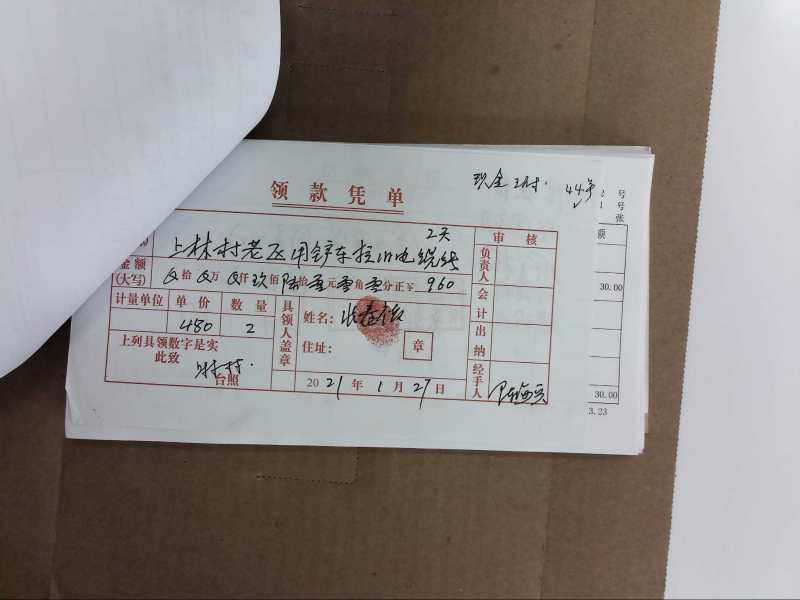 领款凭单
现金 付. 44号
号
号
张
2天
上林村老区用铲车拉旧电缆线
审核
额
金额
(大写)
拾 万 仟玖佰陆拾零元零角零分正¥ 960
负责人
30.00
计量单位 单价 数量
480 2
具领人盖章
姓名:
住址:
章
会计
出纳
上列具领数字是实
此致
台照
2021年1月27日
经手人
30.00
3.23